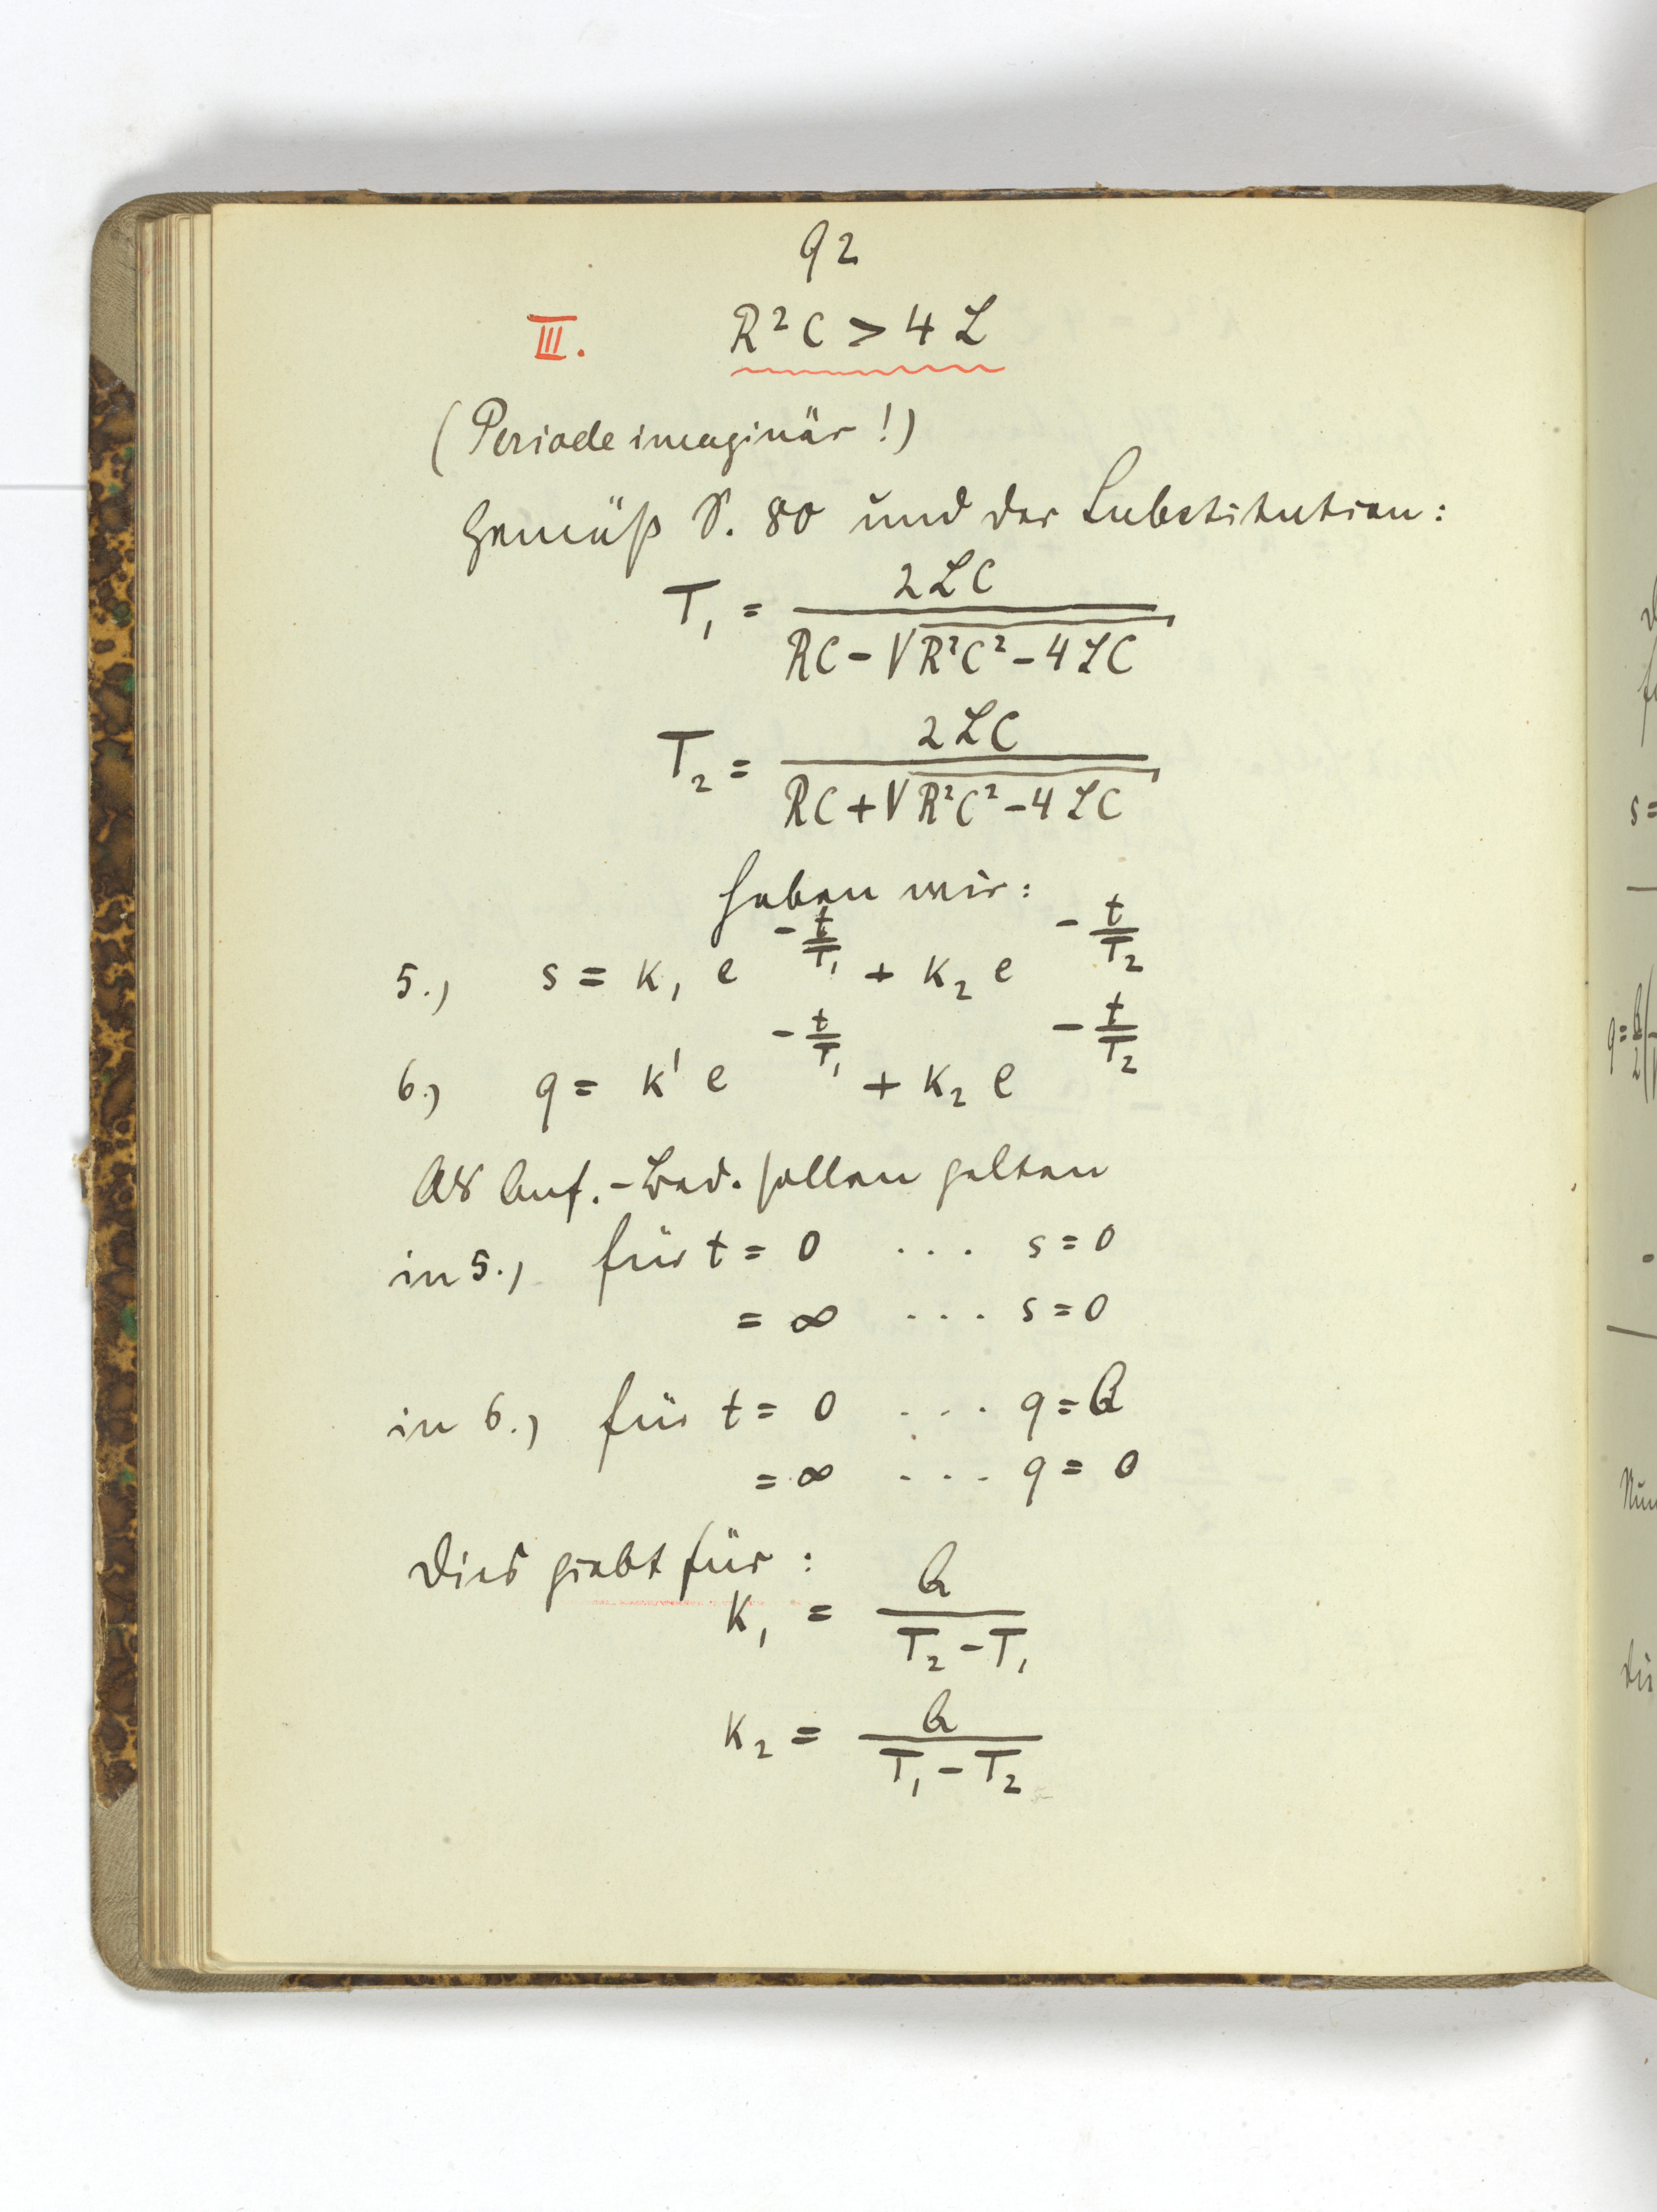 92
III. R²C > 4L
(Periode imaginär!)
Gemäß S. 80 und der Substitution:
T₁ = 2LC / (RC - √(R²C² - 4LC))
T₂ = 2LC / (RC + √(R²C² - 4LC))
haben wir:
5.) s = K₁ e^(-t/T₁) + K₂ e^(-t/T₂)
6.) q = K' e^(-t/T₁) + K₂ e^(-t/T₂)
Als Anf.-Bed. sollen gelten
in 5.) für t = 0 ... s = 0
= ∞ ... s = 0
in 6.) für t = 0 ... q = Q
= ∞ ... q = 0
Dies giebt für:
K₁ = Q / (T₂ - T₁)
K₂ = Q / (T₁ - T₂)